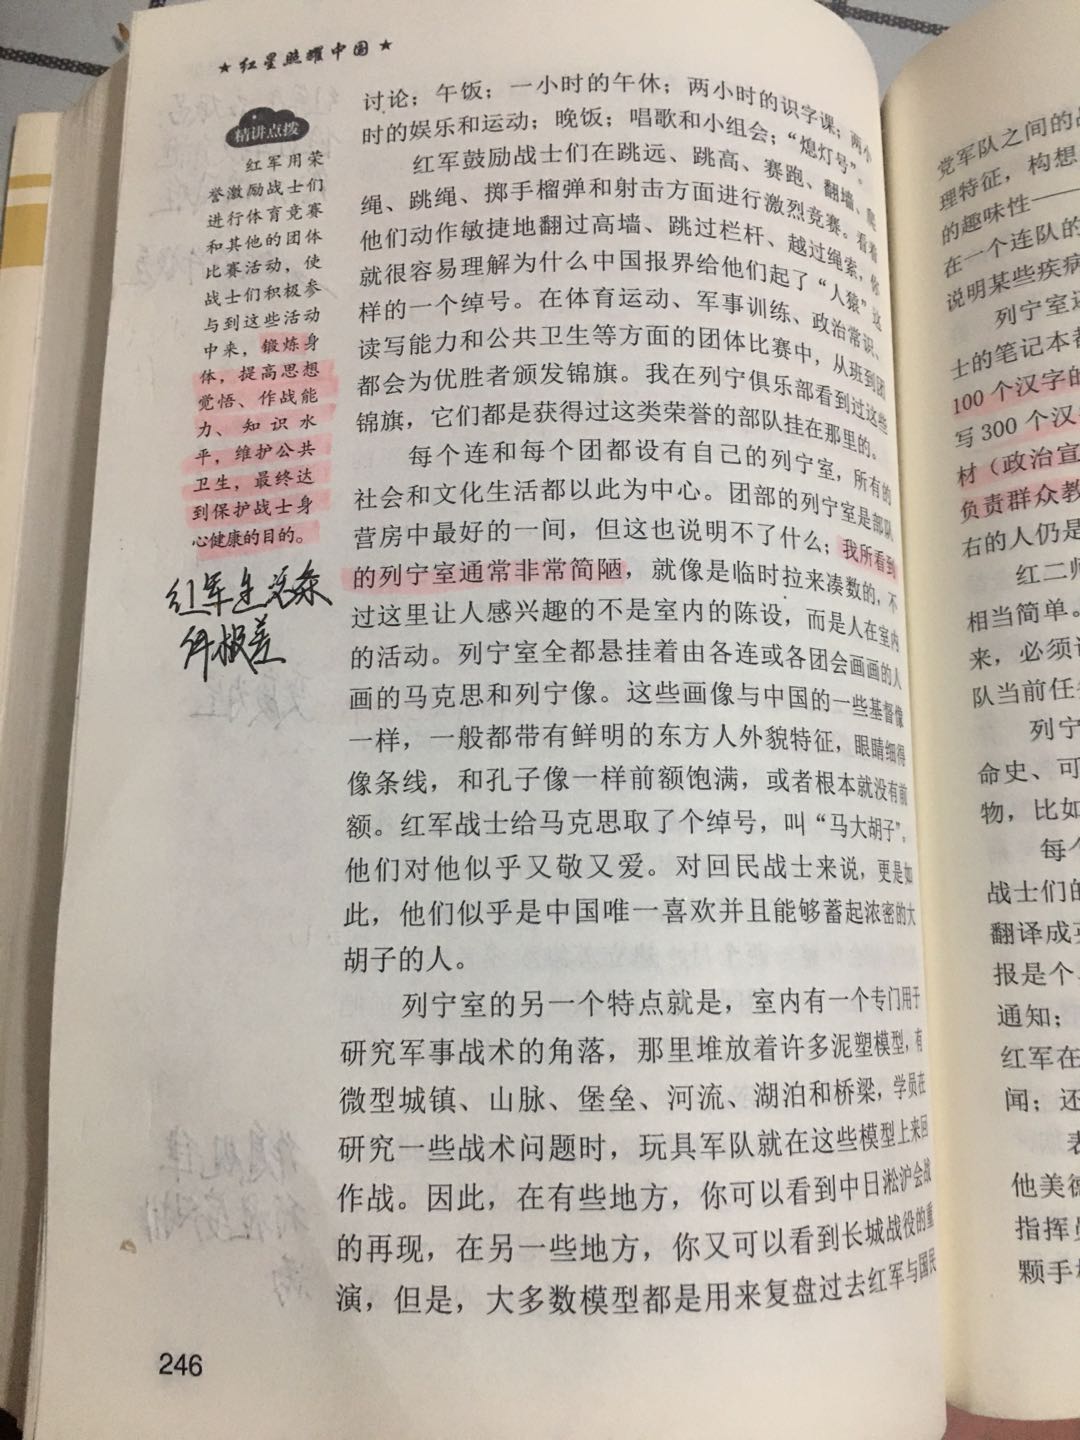 ★ 红星照耀中国 ★
讨论；午饭；一小时的午休；两小时的识字课；两小
时的娱乐和运动；晚饭；唱歌和小组会；“熄灯号”。
红军鼓励战士们在跳远、跳高、赛跑、翻墙、爬
绳、跳绳、掷手榴弹和射击方面进行激烈竞赛。看着
他们动作敏捷地翻过高墙、跳过栏杆、越过绳索，你
就很容易理解为什么中国报界给他们起了“人猿”这
样的一个绰号。在体育运动、军事训练、政治常识、
读写能力和公共卫生等方面的团体比赛中，从班到团
都会为优胜者颁发锦旗。我在列宁俱乐部看到过这些
锦旗，它们都是获得过这类荣誉的部队挂在那里的。
每个连和每个团都设有自己的列宁室，所有的
社会和文化生活都以此为中心。团部的列宁室是部队
营房中最好的一间，但这也说明不了什么；我所看到
的列宁室通常非常简陋，就像是临时拉来凑数的，不
过这里让人感兴趣的不是室内的陈设，而是人在室内
的活动。列宁室全都悬挂着由各连或各团会画画的人
画的马克思和列宁像。这些画像与中国的一些基督像
一样，一般都带有鲜明的东方人外貌特征，眼睛细得
像条线，和孔子像一样前额饱满，或者根本就没有前
额。红军战士给马克思取了个绰号，叫“马大胡子”。
他们对他似乎又敬又爱。对回民战士来说，更是如
此，他们似乎是中国唯一喜欢并且能够蓄起浓密的大
胡子的人。
列宁室的另一个特点就是，室内有一个专门用于
研究军事战术的角落，那里堆放着许多泥塑模型，有
微型城镇、山脉、堡垒、河流、湖泊和桥梁，学员在
研究一些战术问题时，玩具军队就在这些模型上来回
作战。因此，在有些地方，你可以看到中日淞沪会战
的再现，在另一些地方，你又可以看到长城战役的重
演，但是，大多数模型都是用来复盘过去红军与国民
精讲点拨
红军用荣
誉激励战士们
进行体育竞赛
和其他的团体
比赛活动，使
战士们积极参
与到这些活动
中来，锻炼身
体，提高思想
觉悟、作战能
力、知识水
平，维护公共
卫生，最终达
到保护战士身
心健康的目的。
红军生活条
件极差
246
党军队之间的
理特征，构想
的趣味性——
在一个连队的
说明某些疾病
列宁室
士的笔记本都
100个汉字的
写300个汉
材（政治宣
负责群众教
右的人仍是
红二师
相当简单。
来，必须
队当前任
列宁
命史、可
物，比如
每个
战士们的
翻译成
报是个
通知；
红军在
闻；还
他美德
指挥员
颗手